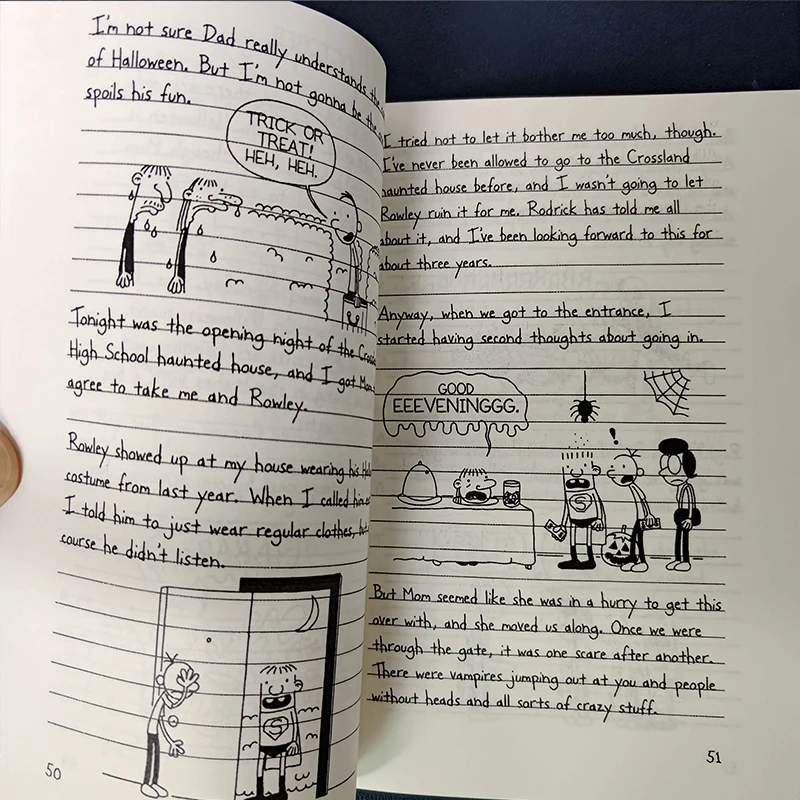 I'm not sure Dad really understands the
of Halloween. But I'm not gonna be the
spoils his fun.
TRICK OR
TREAT!
HEH, HEH.
Tonight was the opening night of the
High School haunted house, and I got Mom
agree to take me and Rowley.
Rowley showed up at my house wearing his
costume from last year. When I called him
I told him to just wear regular clothes,
course he didn't listen.
50
I tried not to let it bother me too much, though.
I've never been allowed to go to the Crossland
haunted house before, and I wasn't going to let
Rowley ruin it for me. Rodrick has told me all
about it, and I've been looking forward to this for
about three years.
Anyway, when we got to the entrance, I
started having second thoughts about going in.
GOOD
EEEVENINGGG.
!
But Mom seemed like she was in a hurry to get this
over with, and she moved us along. Once we were
through the gate, it was one scare after another.
There were vampires jumping out at you and people
without heads and all sorts of crazy stuff.
51